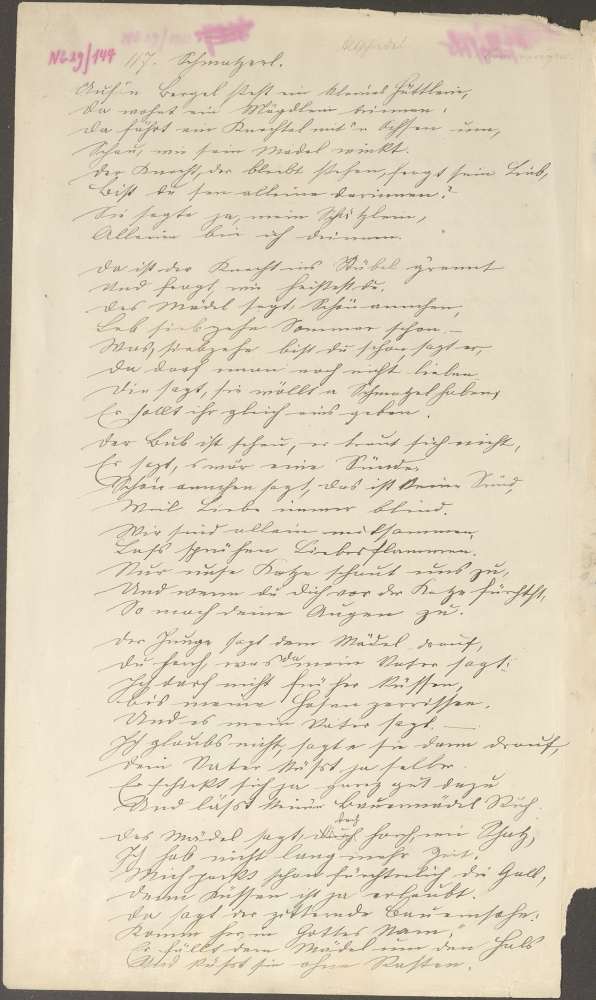 NL 29/149
117. Schmatzerl.
Auf'n Bergel steht ein kleines Hüttlein,
Da wohnt ein Mägdlein drinnen,
Da fährt ein Knechtel mit'n Ochsen um,
Schau, wie sein Madel winkt.
Der Knecht, der bleibt stehen, fragt sein Lieb,
Bist du fen alleine darinnen?
Sie sagte ja, mein Schätzlein,
Alleine bin ich drinnen.
Da ist der Knecht ins Stübel grennt
Und fragt, wie heißest du,
Das Mädel sagt, Schön annchen,
Leb siebzehn Sommer schon. –
Was, siebzehn bist du schon, sagt er,
Da darf man noch nicht lieben
Die sagt, sie wöllt a Schmatzel haben,
Er sollt ihr gleich eins geben.
Der Bub ist scheu, er traut sich nicht,
Er sagt, s wär eine Sünde.
Schön annchen sagt, das ist keine Sünd,
Weil Liebe immer blind.
Wir sind allein mitsammen,
Lass sprühen Liebesflammen.
Nur unse Katze schaut uns zu,
Und wenn du dich vor der Katze fürchtst,
So mach deine Augen zu.
Der Junge sagt dem Mädel drauf,
Du horch, was da mein Vater sagt:
Ich darf nicht früher küssen,
bis meine Hosen zerrissen.
Und es mein Vater sagt. –
Ich glaubs nicht, sagte sie dann drauf,
Dein Vater küsst ja selber
Er schickt sich ja ganz gut dazu
Und lässt keine Bauernmädel Ruh.
Das Mädel sagt, doch horch, mei Schatz,
Ich hab nicht lang mehr Zeit.
Mich packt schon fürchterlich die Gall,
Denn Küssen ist ja erlaubt.
Da sagt der zitternde Bauernsohn:
Komm her in Gottes Nam,
Er fällt dem Mädel um den Hals
Und küsst sie ohne Rasten.